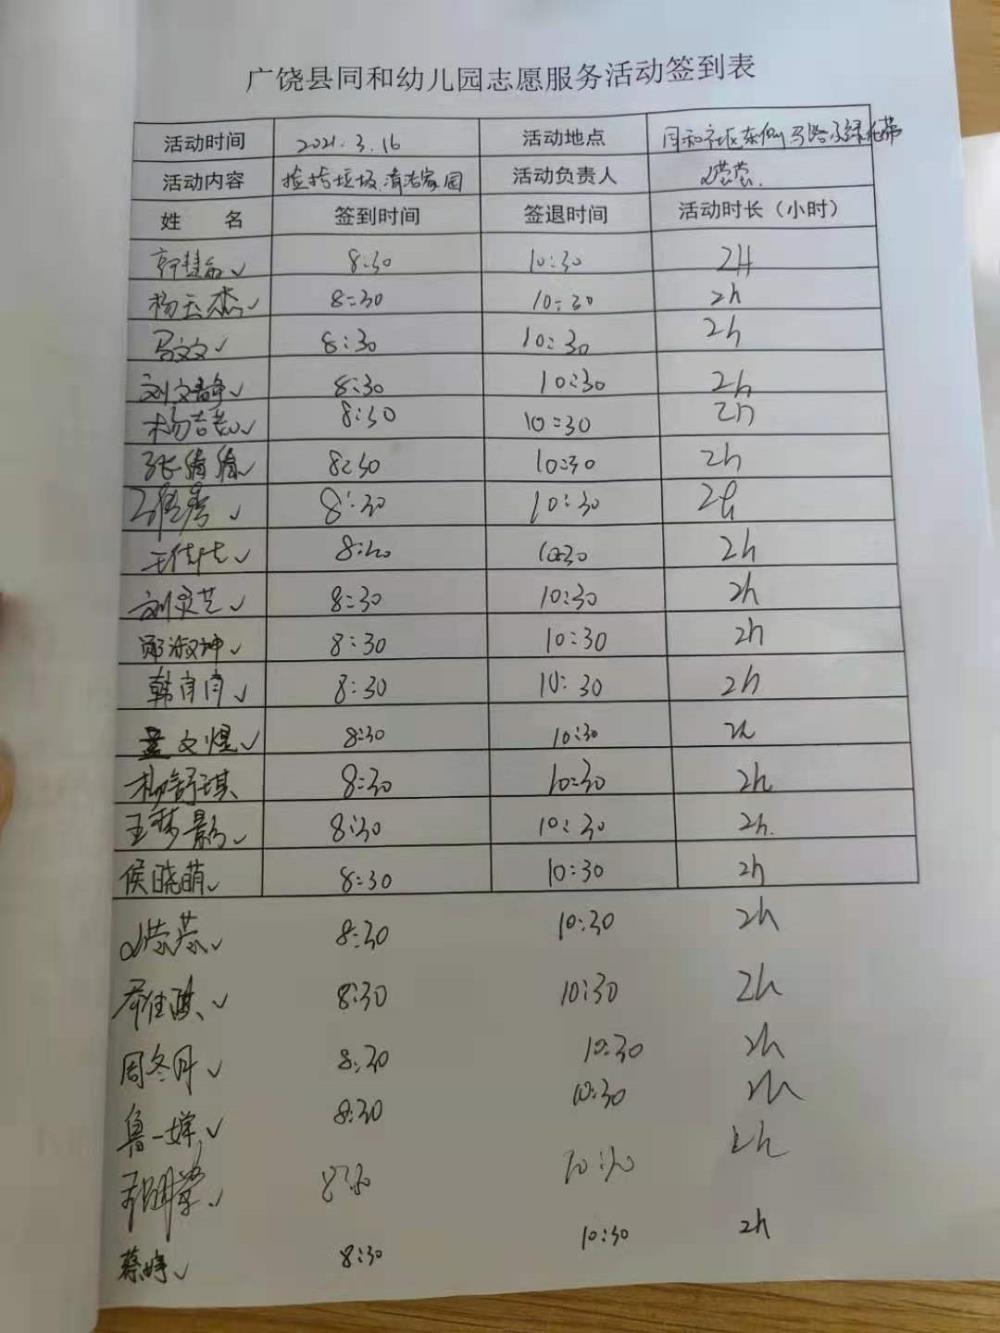 广饶县同和幼儿园志愿服务活动签到表
活动时间 2021.3.16 活动地点 同和社区东侧马路及绿化带
活动内容 捡拾垃圾.清洁家园 活动负责人
姓 名 签到时间 签退时间 活动时长（小时）
8:30 10:30 2H
杨玉杰✓ 8:30 10:30 2h
马文文✓ 8:30 10:30 2h
刘文静✓ 8:30 10:30 2h
8:30 10:30 2h
张倩倩✓ 8:30 10:30 2h
8:30 10:30 2h
王佳佳✓ 8:30 10:30 2h
刘灵芝✓ 8:30 10:30 2h
郭淑坤✓ 8:30 10:30 2h
韩肖肖✓ 8:30 10:30 2h
孟文煜✓ 8:30 10:30 2h
杨舒琪 8:30 10:30 2h
王梦影✓ 8:30 10:30 2h.
侯晓萌✓ 8:30 10:30 2h
8:30 10:30 2h
8:30 10:30 2h
周冬月✓ 8:30 10:30 2h
鲁一婵✓ 8:30 10:30 2h
8:30 10:30 2h
蔡婷✓ 8:30 10:30 2h